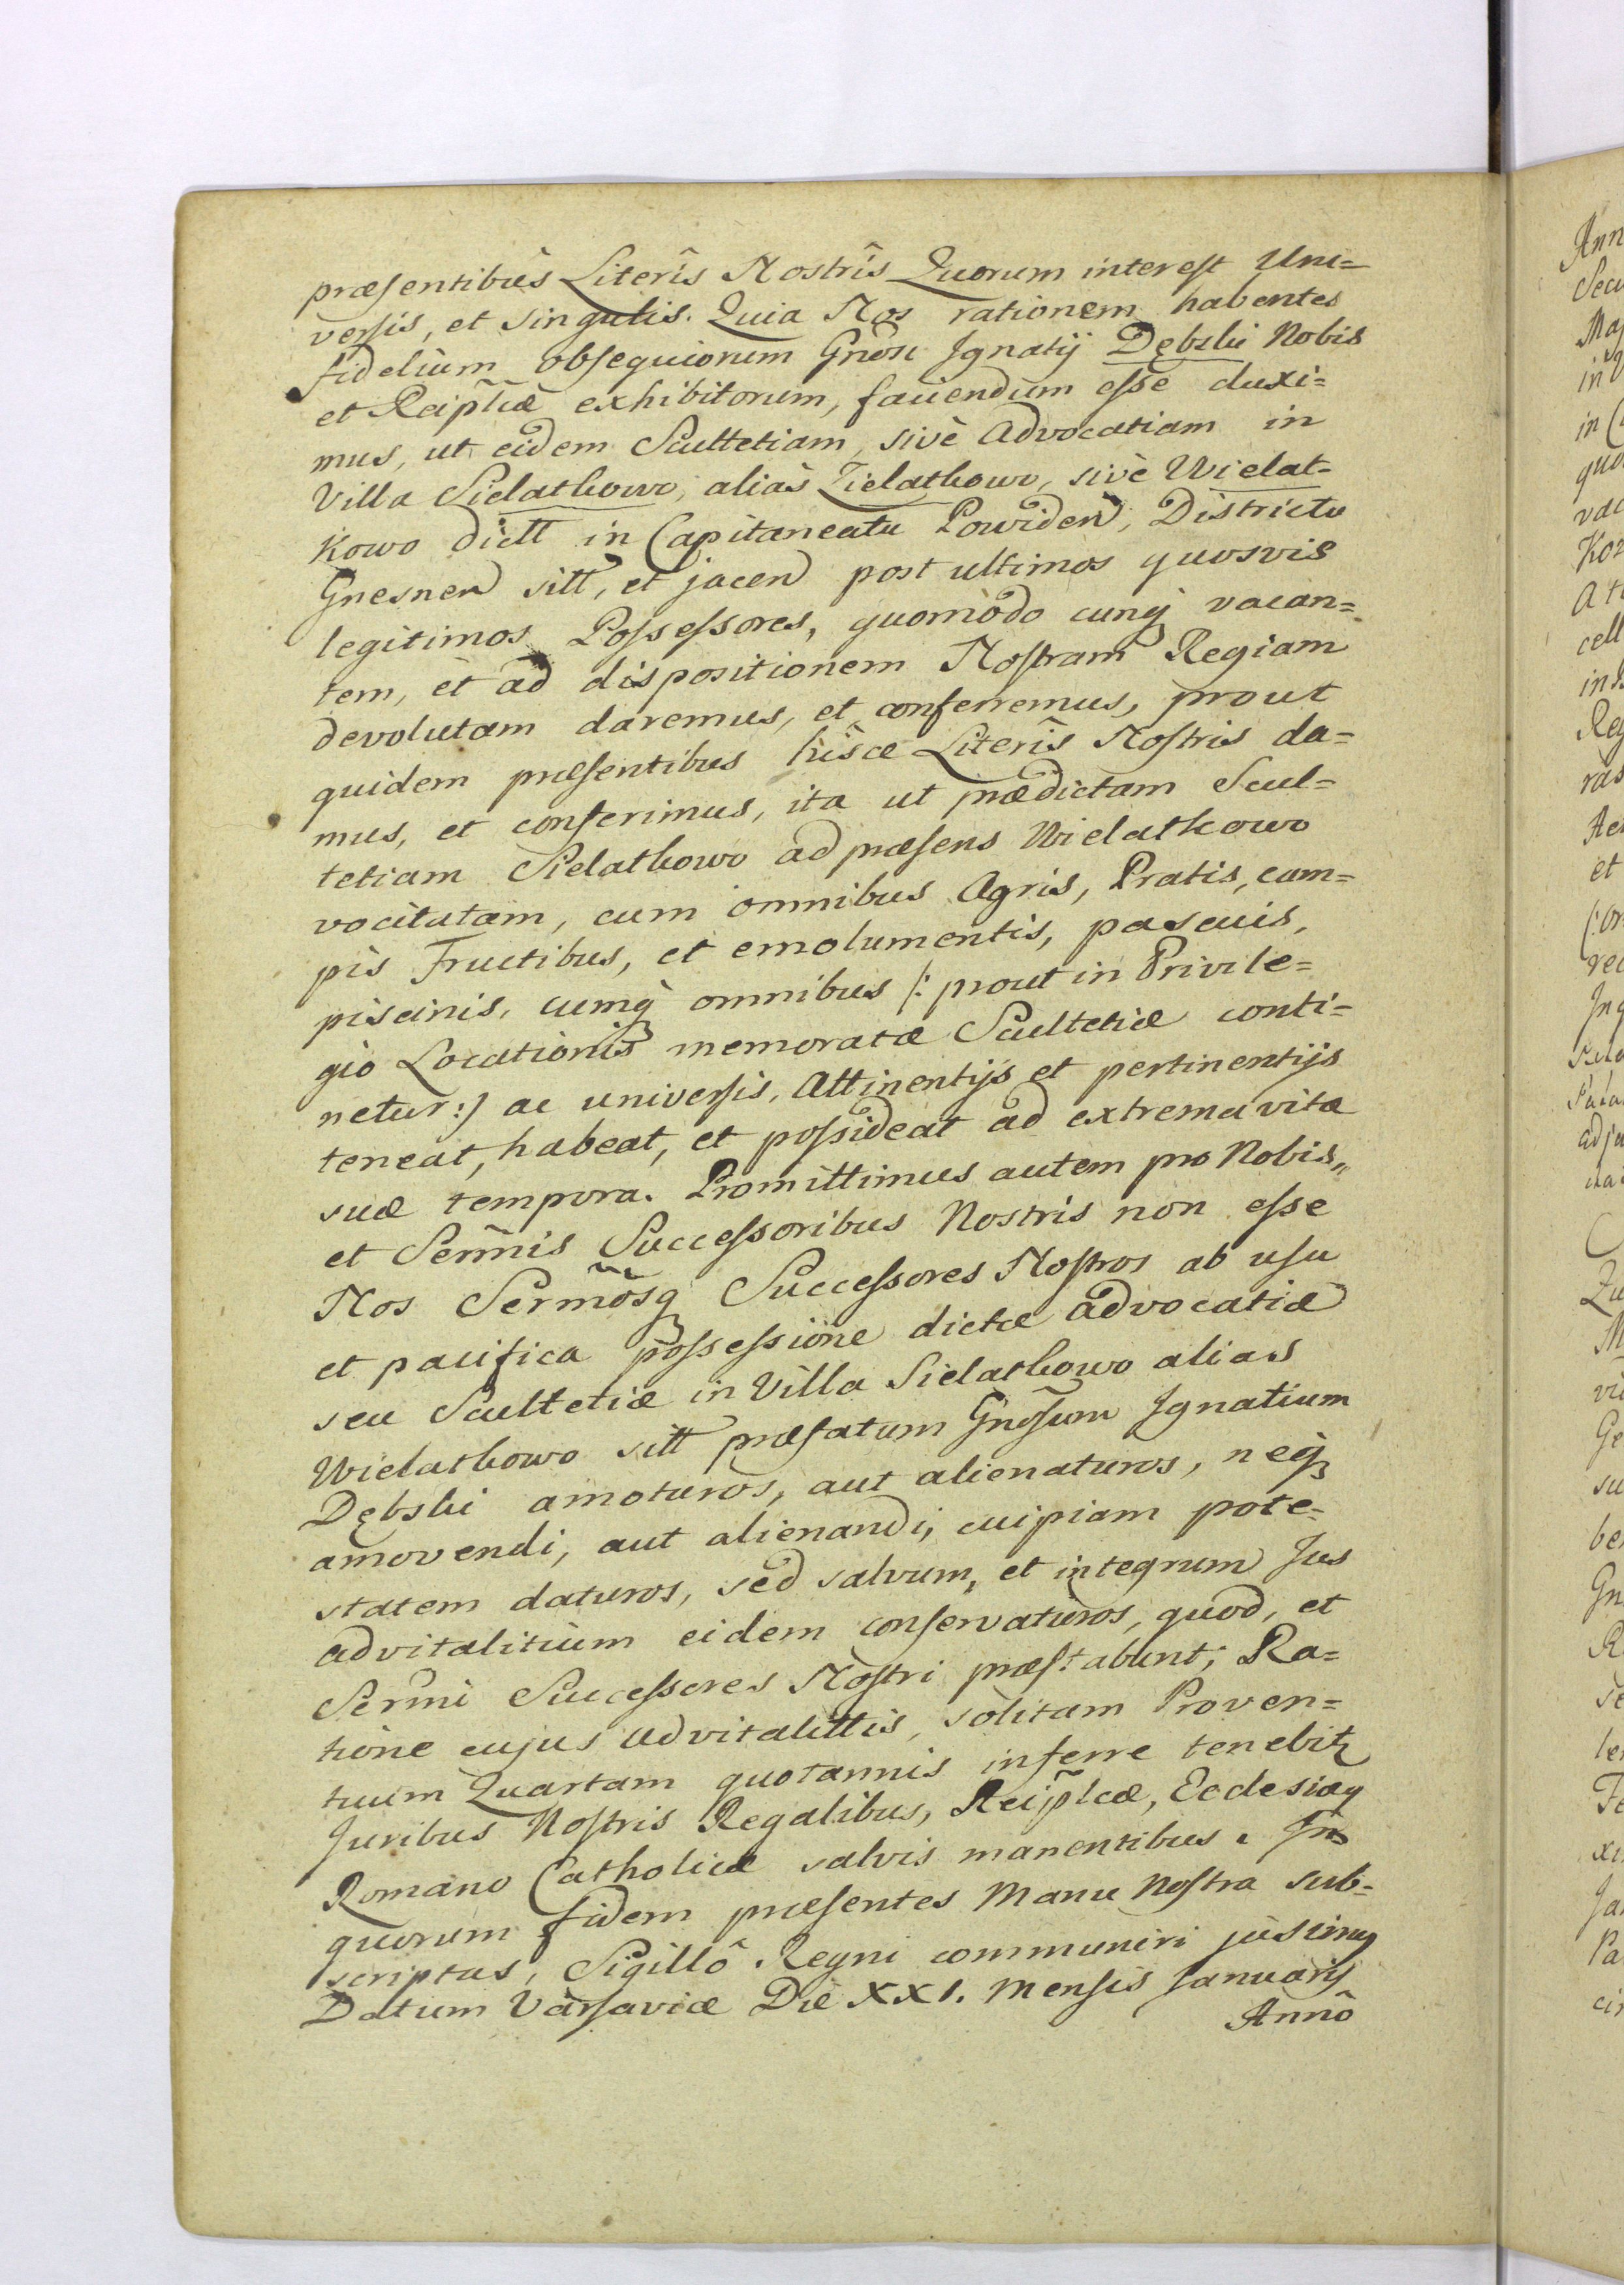 præsentibùs Literîs Nostrîs Quorum interest Uni=
versis, et singulis. Quia Nos rationem habentes
fidelium obsequiorum Gnosi Ignatij Dębski Nobis
et Reiplicæ exhibitorum, favendum esse duxi=
mus, ut eidem Scultetiam, sivè Advocatiam in
Villa Sielatkowo, aliàs Zielatkowo, sivè Wielat=
kowo dictt in Capitaneatu Powiden, Districtu
Gnesnen sitt, et jacen post ultimos quosvis
legitimos Possessores, quomodo cunq vacan=
tem, et ad dispositionem Nostram Regiam
devolutam daremus, et conferremus, prout
quidem præsentibus hisce Literîs Nostris da=
mus, et conferimus, ita ut prædictam Scul=
tetiam Sielatkowo ad præsens Wielatkowo
vocitatam, cum omnibus Agris, Pratis, cam=
pis Fructibus, et emolumentis, pascuis,
piscinis, cumq omnibus /: prout in Privile=
gio Locationis memoratæ Scultetiæ conti=
netur :/ ac universis, Attinentijs et pertinentijs
teneat, habeat, et possideat ad extrema vitæ
suæ tempora. Promittimus autem pro Nobis,,
et Sermis Successoribus Nostris non esse
Nos Sermosq Successores Nostros ab usu
et pacifica possessione dictæ advocatiæ
seu Scultetiæ in Villa Sielatkowo alias
Wielatkowo sitt præfatum Gnosum Ignatium
Dębski amoturos, aut alienaturos, neq
amovendi, aut alienandi, cuipiam pote=
statem daturos, sed salvum, et integrum Jus
advitalitium eidem conservaturos, quod, et
Sermi Successores Nostri præstabunt; Ra=
tione cujus advitalittis, solitam Proven=
tuum Quartam quotannis inferre tenebitr
Juribus Nostris Regalibus, Reiplcæ, Ecclesiæq
Romano Catholicæ salvis manentibus. In
quorum fidem præsentes Manu Nostra sub=
scriptas, Sigillô Regni communiri jussimus
Datum Varsaviæ Die XXI. Mensis Januarij
Annô